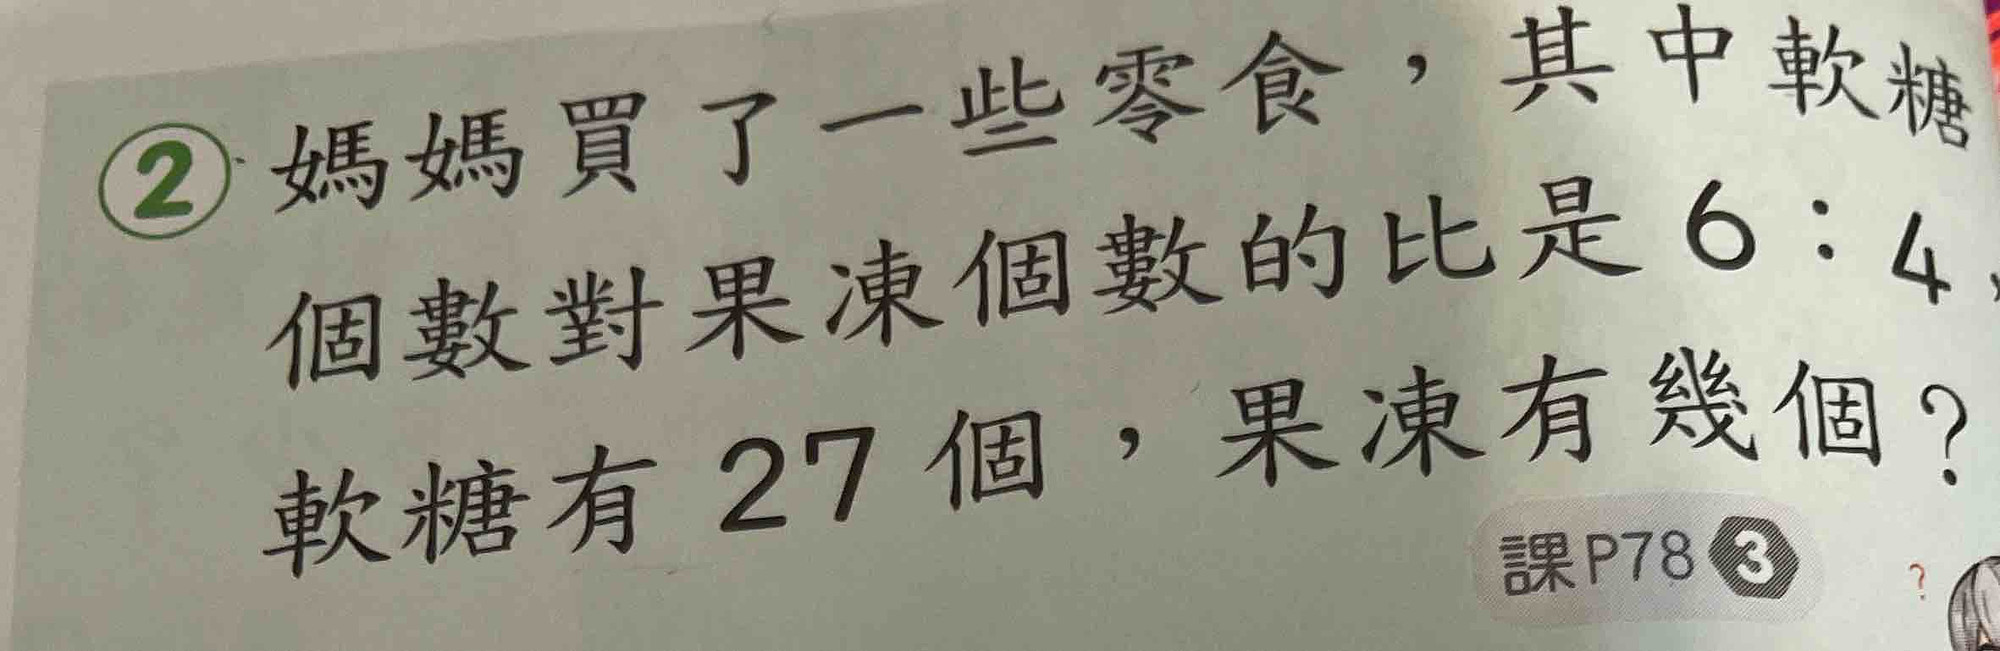 ② 媽媽買了一些零食，其中軟糖
個數對果凍個數的比是6：4，
軟糖有27個，果凍有幾個？
課P78 3
?